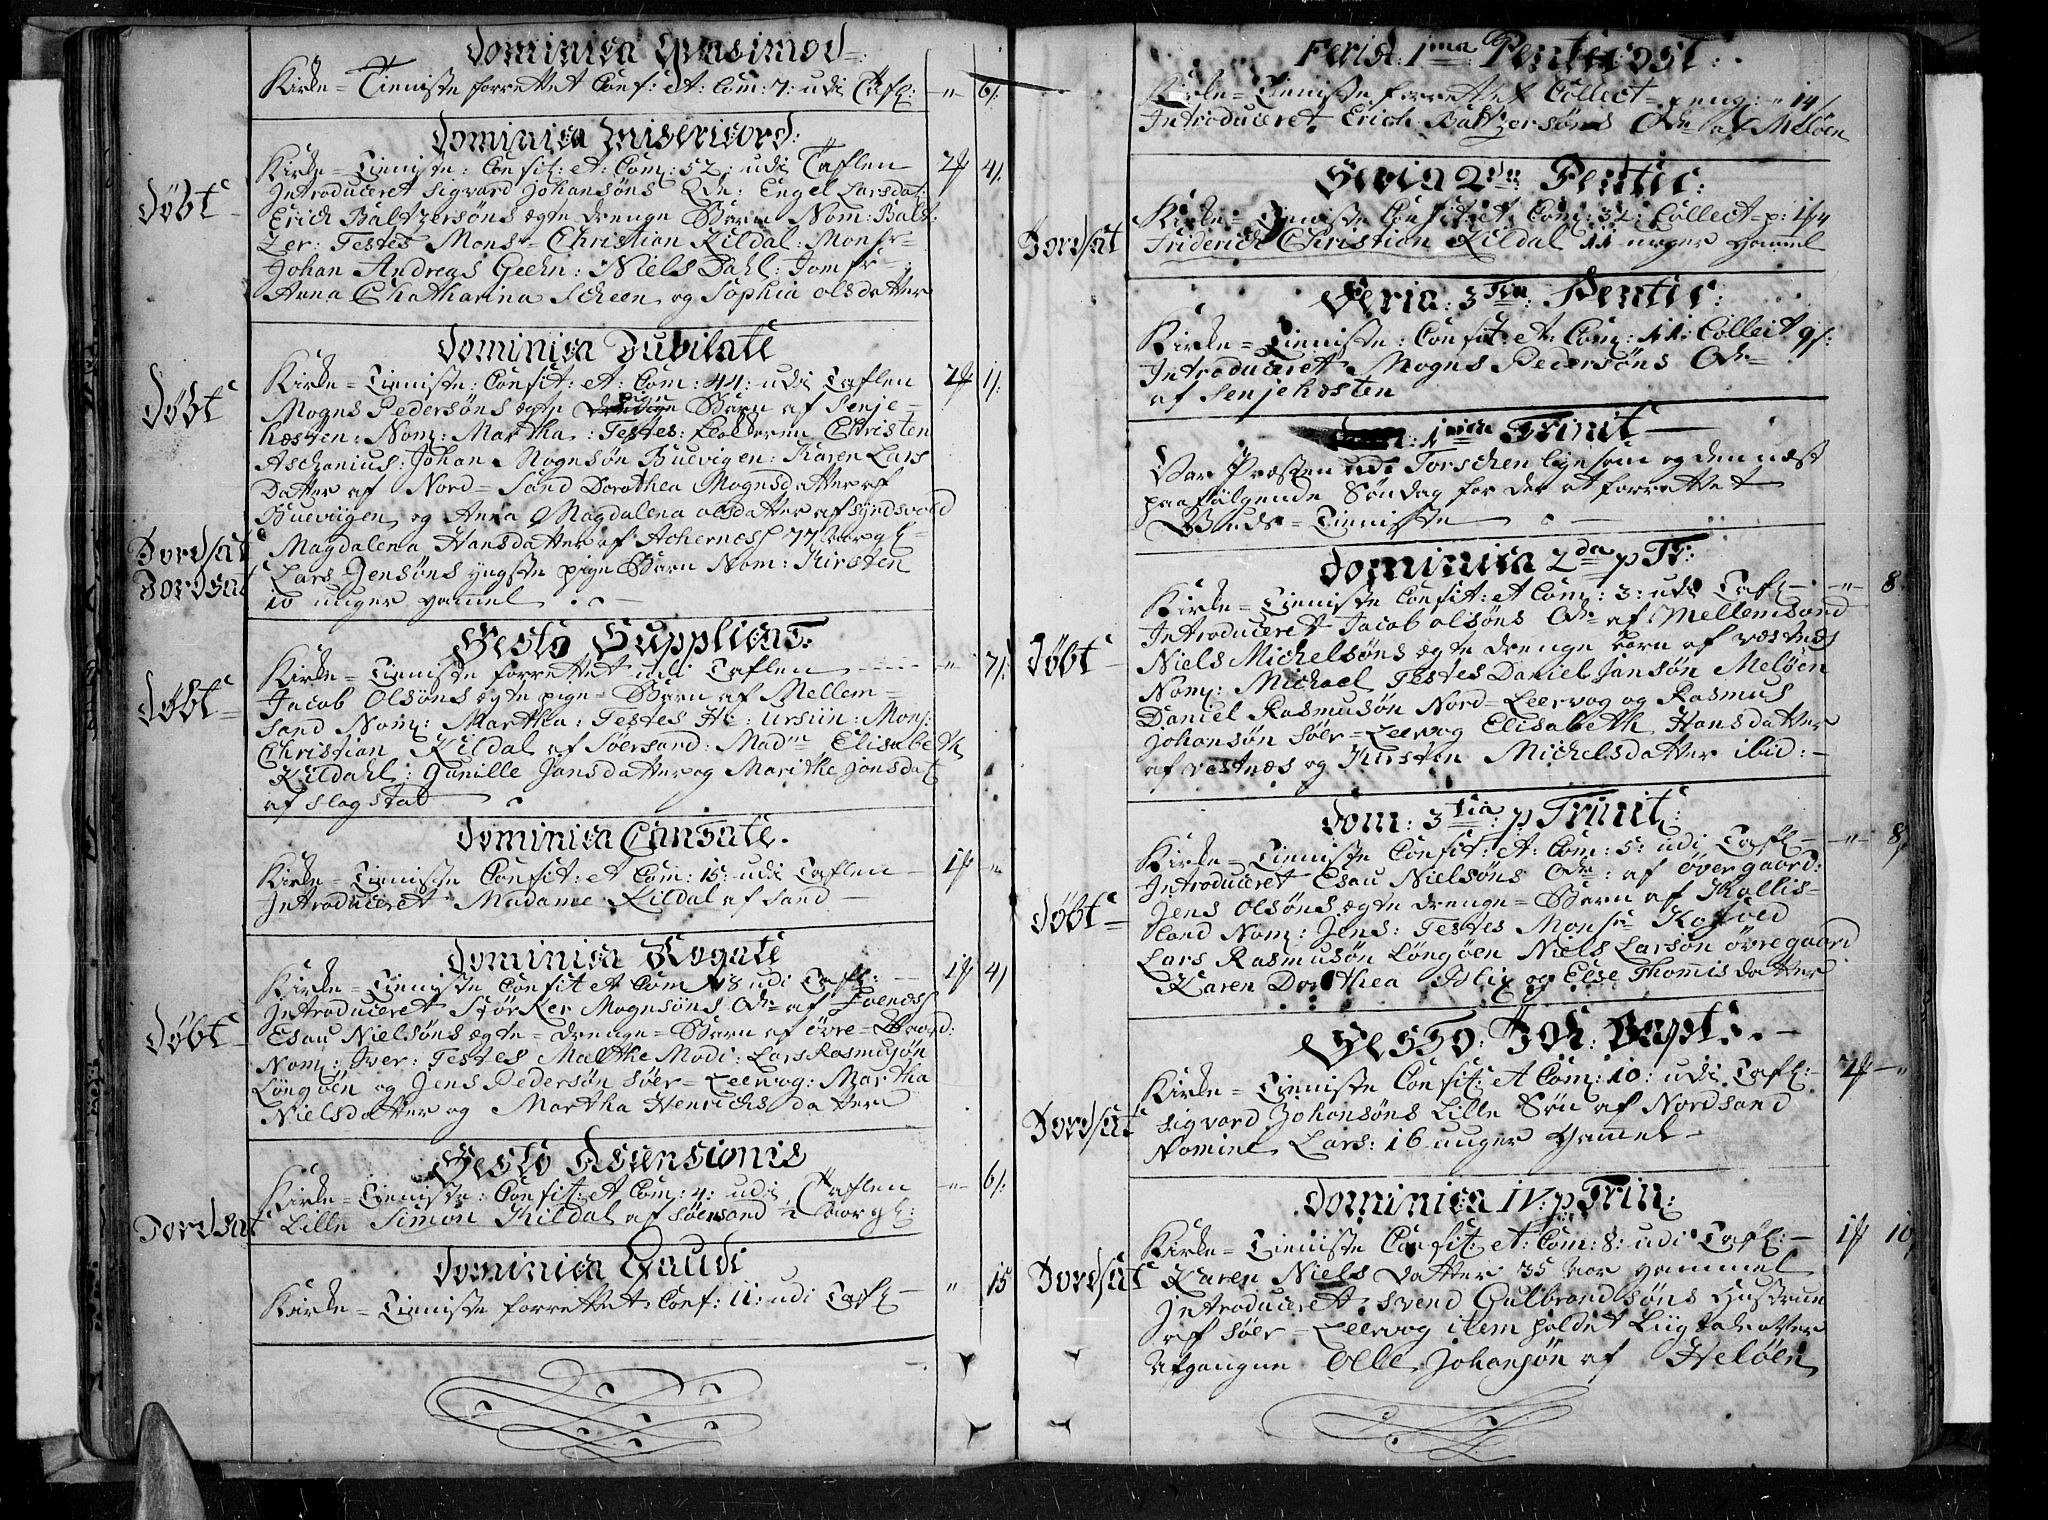 Dominica Qvasimod:
Kirke=Tieniste forrettet Conf: et: Com: 7: udi Tafl: -"- 6/:
Dominica Misericord:
Døbt
Kirke=Tieniste: Confit: et: Com: 52: udi Taflen 2# 4/.
Introduceret Sigvard Johansøns Qde: Engel Larsdat:
Erich Baltzersøns ægte drenge Barn Nom: Balt
zer: Testes Mons= Christian Kildal: Monsr=
Johan Andreas Geehn: Niels Dahl: Jomfr=
Anna Chatharina Scheen og Sophia Olsdatter
Dominica Jubilate
Døbt
Kirke=Tieniste: Confit: et: Com: 44: udi Taflen 2# 1/:
Mogns Pedersøns ægte pige Barn af Senje=
hæsten: Nom: Martha: Testes: Christen
Aschanius: Johan Mognsøn Buevigen: Karen Lars
Datter af Nord=Sand Dorothea Mognsdatter af
Buevigen og Anna Magdalena Olsdatter af
Jordsat
Magdalena Hansdatter af Achernes 77 Aar gl=
Jordsat
Lars Jensøns yngste pige Barn Nom: Kirsten
10 uuger gammel
Festo Supplicat:
Døbt
Kirke=Tieniste forrettet udi Taflen " 7/:
Jacob Olsøns ægte pige=Barn af Mellem=
sand Nom: Martha: Testes Hr: Ursiin: Mons:
Christian Kildal af Søersand: Madm Elisabeth
Kildahl: Gunille Jansdatter og Marithe Jonsdat
af Slogstad
Dominica Cantate.
Kirke=Tieniste Confit: et Com: 15: udi Taflen 1# "
Introduceret Madame Kildal af Sand
Dominica Rogate
Døbt
Kirke=Tieniste Confit et Com 18 udi Tafl: 1# 4/
Introduceret Størker Mognsøns Qde af
Esau Nielsøns ægte=drenge=Barn af Øvre=Gaard:
Nom: Iver: Testes Malthe Modi: Lars Rasmusøn
Löngöen og Jens Pedersøn Søer=Leervog: Martha
Nielsdatter og Martha Henrichsdatter
Festo Ascensionis
Kirke=Tieniste: Confit: et Com: 4: udi Taflen -"- 6/:
Jordsat
Lille Simon Kildal af Søersand ½ Aar gl:
Dominica Exaudi
Kirke=Tieniste forrettet: Conf: 11: udi Tafl " 15
Feria: 1ma Pentecost:
Kirke=Tieniste forrettet Collect=peng: " 14/
Introduceret Erich Baltzersøns Qde af Meløen
Feria 2da Pentec:
Kirke=Tieniste Confit et Com: 32: Collect=p:
Jordsat
Friderich Christian Kildal 11 uuger gammel
Feria: 3tia Pentec:
Kirke=Tieniste: Confit: et: Com: 11: Collect 9/:
Introduceret Mogns Pedersøns Qde
af Senjehæsten
Dom: 1ma Trinit
Var Præsten udi Torschen ligesom og den næst
paafølgende Søndag for der at forrettet
Guds=Tieniste
Dominica 2da p Tr:
Kirke=Tieniste Confit: et Com: 3: udi Tafl: -"- 8
Introduceret Jacob Olsøns Qde af Mellemsand
Døbt
Niels Michelsøns ægte drenge Barn af Væstnæs
Nom: Michael Testes Daniel Jansøn Meløen
Daniel Rasmusøn Nord=Leervog og Rasmus
Johansøn Søer=Leervog Elisabeth Hansdatter
af Vestnæs og Kirsten Michelsdatter ibid:
Dom: 3tia p Trinit:
Kirke=Tieniste Confit: et: Com: 5: udi Tafl -"- 8/
Introduceret Esau Nielsøns Qde: af Øvergaard:
Døbt
Jens Olsøns ægte drenge=Barn af Kallis=
land Nom: Jens: Testes Monsr Kofoed
Lars Rasmusøn Löngöen Niels Larsøn Øvregaard
Karen Dorothea Blix og Else Thomisdatter
Festo: Joh: Bapt:
Kirke=Tieniste Confit: et Com: 10: udi Tafl: 2# "
Jordsat
Sigvard Johansøns Lille Søn af Nordsand
Nomine Lars: 16 uuger gammel
Dominica IV: p Trin:
Kirke=Tieniste Confit: et: Com: 8: udi Tafl: 1# 10/
Jordsat
Karen Niels datter 35 Aar gammel
Introduceret Svend Gulbrandsøns Hustrue
af Søer=Leervog item holdet Liigtale over
Afgangne Olle Johansøn af Heløen